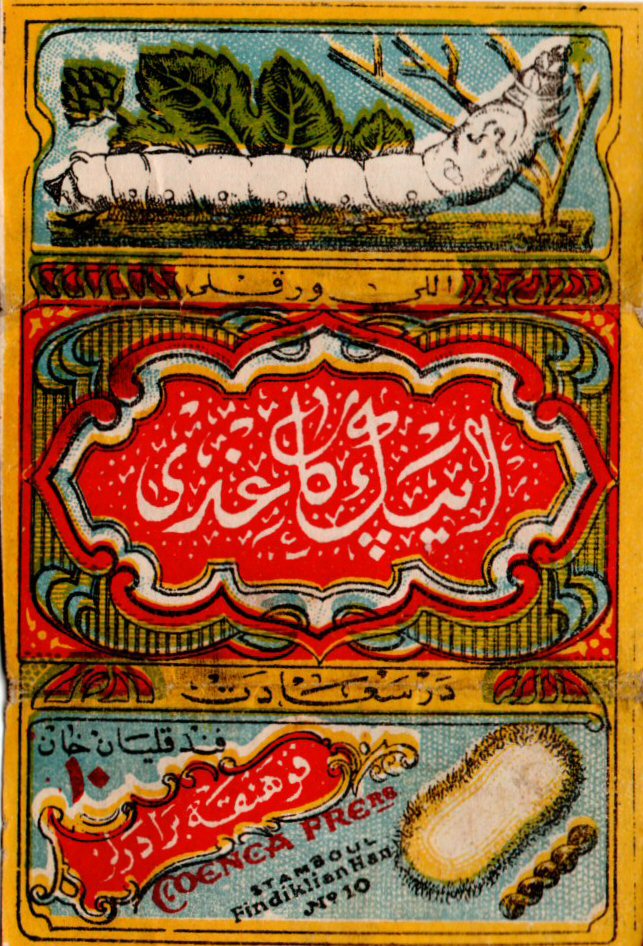 اللی ورقلی
ایپك كاغدی
درسعادت
فندقلیان خان
١٠
برادرلر
COENCA FRERES
STAMBOUL
Findiklian Han
No 10